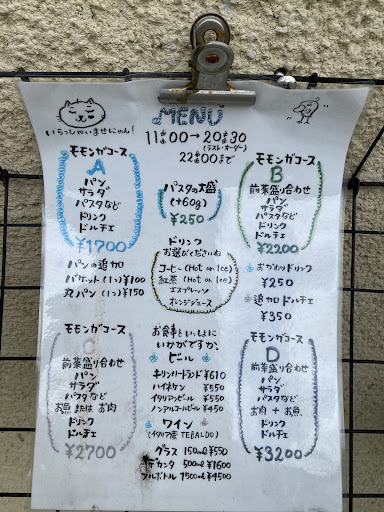 いらっしゃいませにゃん!
MENU
11:00→20:30
(ラスト・オーダー)
22:00まで
モモンガコース
A
パン
サラダ
パスタなど
ドリンク
ドルチェ
¥1700
パスタの大盛
(+60g)
¥250
モモンガコース
B
前菜盛り合わせ
パン
サラダ
パスタなど
ドリンク
ドルチェ
¥2200
パンの追加
バケット(1つ)¥100
丸パン(1つ)¥150
ドリンク
お選びくださいね
コーヒー(Hot or Ice)
紅茶(Hot or Ice)
エスプレッソ
オレンジジュース
おかわりドリンク
¥250
追加ドルチェ
¥350
モモンガコース
C
前菜盛り合わせ
パン
サラダ
パスタなど
お魚またはお肉
ドリンク
ドルチェ
¥2700
お食事といっしょに
いかがですか。
ビール
キリンハートランド¥610
ハイネケン ¥550
イタリアンビール ¥550
ノンアルコールビール¥450
ワイン
(イタリア産 TEBALDO)
グラス 150ml ¥550
デカンタ 500ml ¥1600
フルボトル 750ml ¥4500
モモンガコース
D
前菜盛り合わせ
パン
サラダ
パスタなど
お肉+お魚
ドリンク
ドルチェ
¥3200